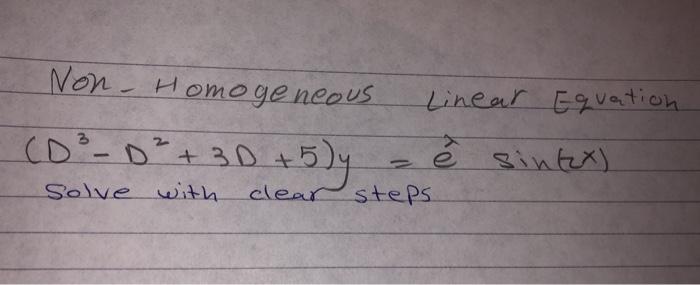 Non - Homogeneous Linear Equation
(D³ - D² + 3D + 5)y = ê sin(2x)
Solve with clear steps